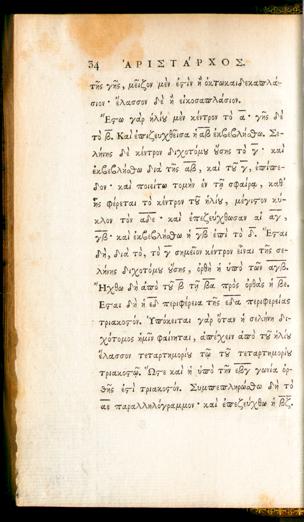 34 ἈΡΙΣΤΑΡΧΟΣ.
τῆς γῆς, μεῖζον μὲν ἐστὶν ἢ ὀκτωκαιδεκαπλά-
σιον· ἔλασσον δὲ ἢ εἰκοσαπλάσιον.
Ἔστω γὰρ ἡλίου μὲν κέντρον τὸ α· γῆς δὲ
τὸ β. Καὶ ἐπιζευχθεῖσα ἡ αβ ἐκβεβλήσθω. Σε-
λήνης δὲ κέντρον διχοτόμου οὔσης τὸ γ· καὶ
ἐκβεβλήσθω διὰ τῆς αβ, καὶ τοῦ γ, ἐπίπε-
δον· καὶ ποιείτω τομὴν ἐν τῇ σφαίρᾳ, καθ'
ἧς φέρεται τὸ κέντρον τοῦ ἡλίου, μέγιστον κύ-
κλον τὸν αδε· καὶ ἐπεζεύχθωσαν αἱ αγ,
γβ· καὶ ἐκβεβλήσθω ἡ γβ ἐπὶ τὸ δ. Ἔσται
δὴ, διὰ τὸ, τὸ γ σημεῖον κέντρον εἶναι τῆς σε-
λήνης διχοτόμου οὔσης, ὀρθὴ ἡ ὑπὸ τῶν αγβ.
Ἤχθω δὴ ἀπὸ τοῦ β τῇ βα πρὸς ὀρθὰς ἡ βε.
Ἔσται δὴ ἡ εδ περιφέρεια τῆς εδα περιφερείας
τριακοστόν. Ὑπόκειται γὰρ ὅταν ἡ σελήνη δι-
χότομος ἡμῖν φαίνηται, ἀπέχειν ἀπὸ τοῦ ἡλίου
ἔλασσον τεταρτημορίου τῷ τοῦ τεταρτημορίου
τριακοστῷ. Ὥστε καὶ ἡ ὑπὸ τὴν εβγ γωνία ὀρ-
θῆς ἐστὶ τριακοστόν. Συμπεπληρώσθω δὴ τὸ
αε παραλληλόγραμμον· καὶ ἐπεζεύχθω ἡ βζ.